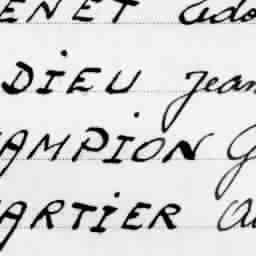 ENET Edo
DIEU Jean
AMPION G
ARTIER Au